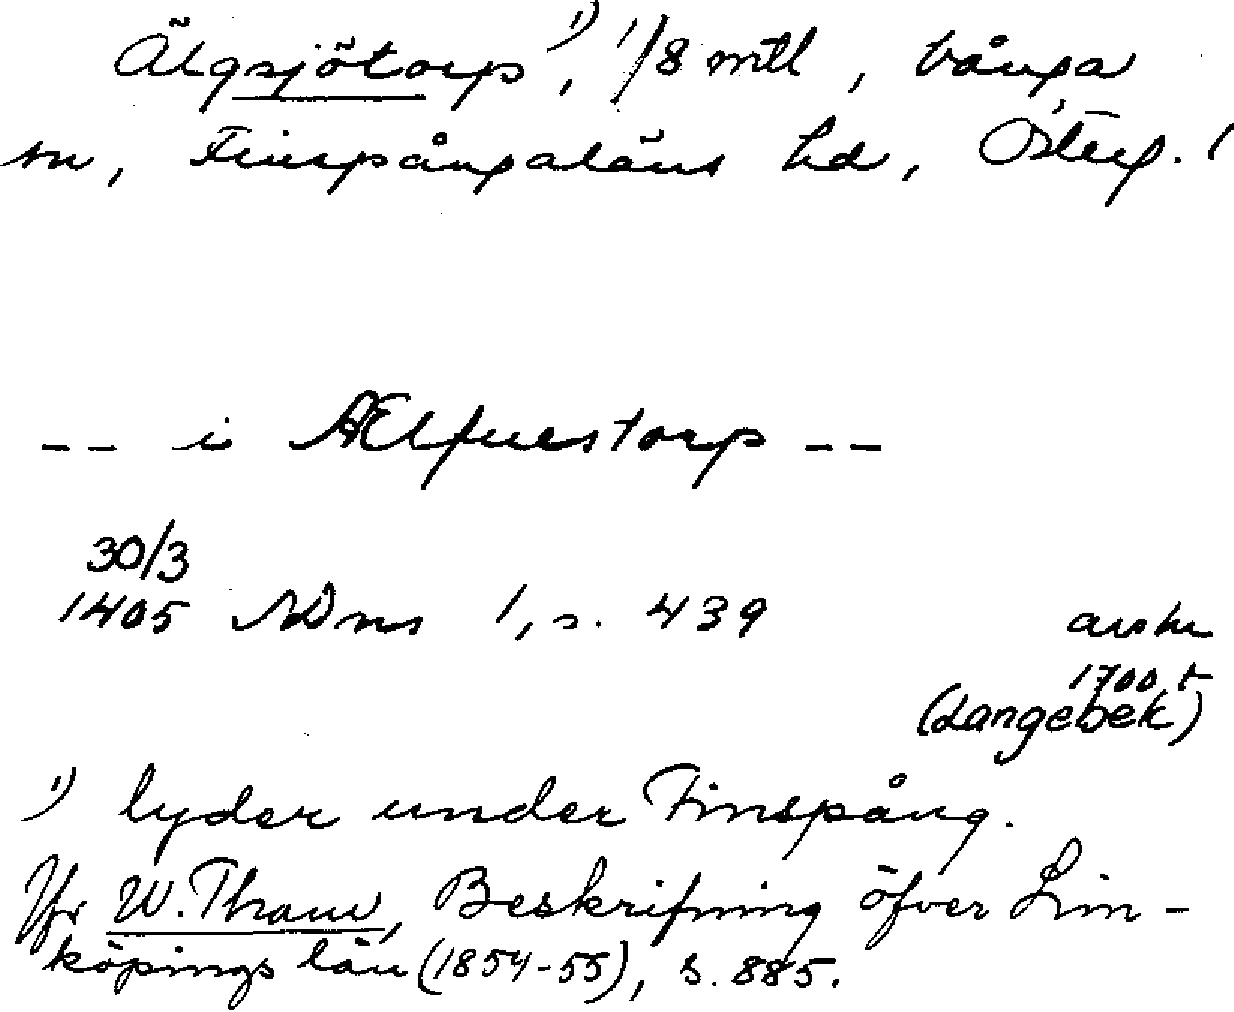 Älgsjötorp ¹⁾, 1/8 mtl, Vånga
sn, Finspångaläns hd, Österg.
-- i Ælfuestorp --
30/3
1405 NDns 1, s. 439
avskr
1700 t
(Langebek)
¹⁾ lyder under Finspång.
Jfr W. Tham, Beskrifning öfver Lin-
köpings län (1854-55), s. 885.